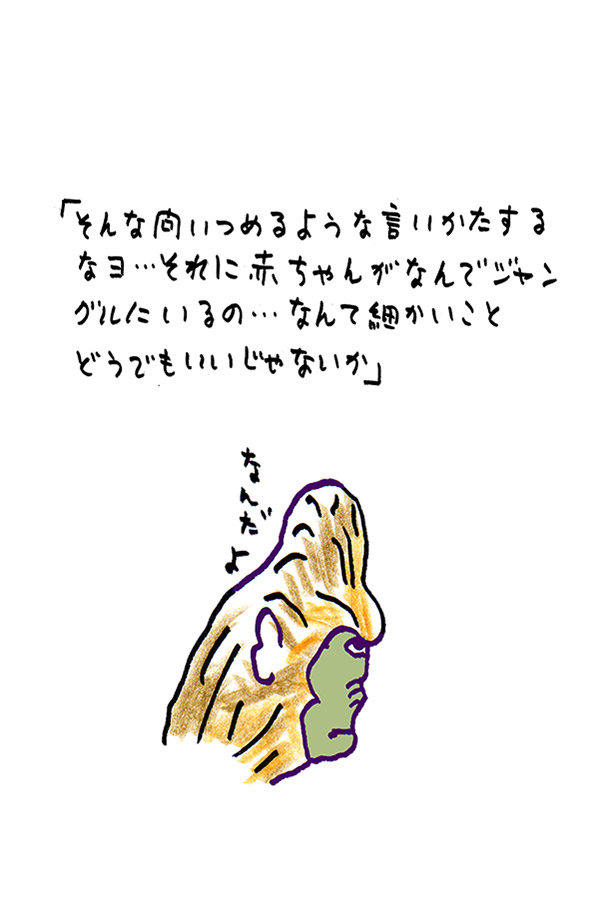 「そんな問いつめるような言いかたする
なヨ…それに赤ちゃんがなんでジャン
グルにいるの…なんて細かいこと
どうでもいいじゃないか」
なんだよ